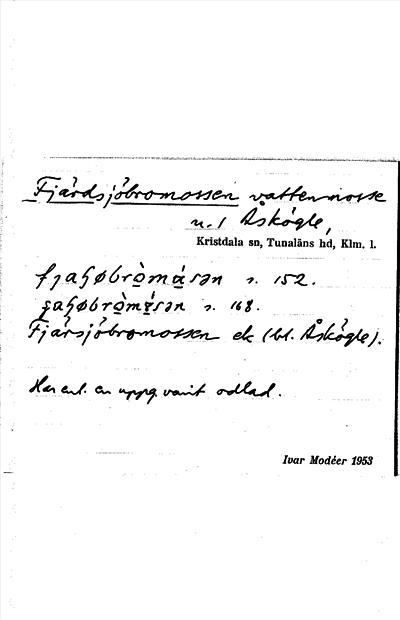 Fjärdsjöbromossen vattenmosse
n. 1 Åskögle,
Kristdala sn, Tunaläns hd, Klm. l.
s. 152.
s. 168.
Fjärsjöbromossen ek (bl. Åskögle).
Har enl. en uppg. varit odlad.
Ivar Modéer 1953